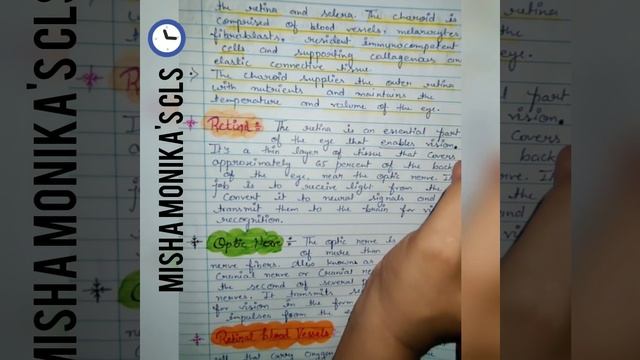 MISHA MONIKA'S CLS
the retina and sclera. The charoid is
comprised of blood vessels, melanocytes
fibroblasts, resident immunocompetent
cells and supporting collagenous and
elastic connective tissue.
The charoid supplies the outer retina
with nutrients and maintains the
temperature and volume of the eye.
Retina :- The retina is an essential part
of the eye that enables vision.
It's a thin layer of tissue that covers
approximately 65 percent of the back
of the eye, near the optic nerve. I
job is to receive light from the
Convert it to neural signals and
transmit them to the brain for vi
recognition.
Optic Nerve :- The optic nerve is
of more than
nerve fibers. Also known as
Cranial nerve or Cranial ne
the second of several p
nerves. It transmits se
for vision in the form
impulses from the
Retinal blood Vessels
that carry oxygen